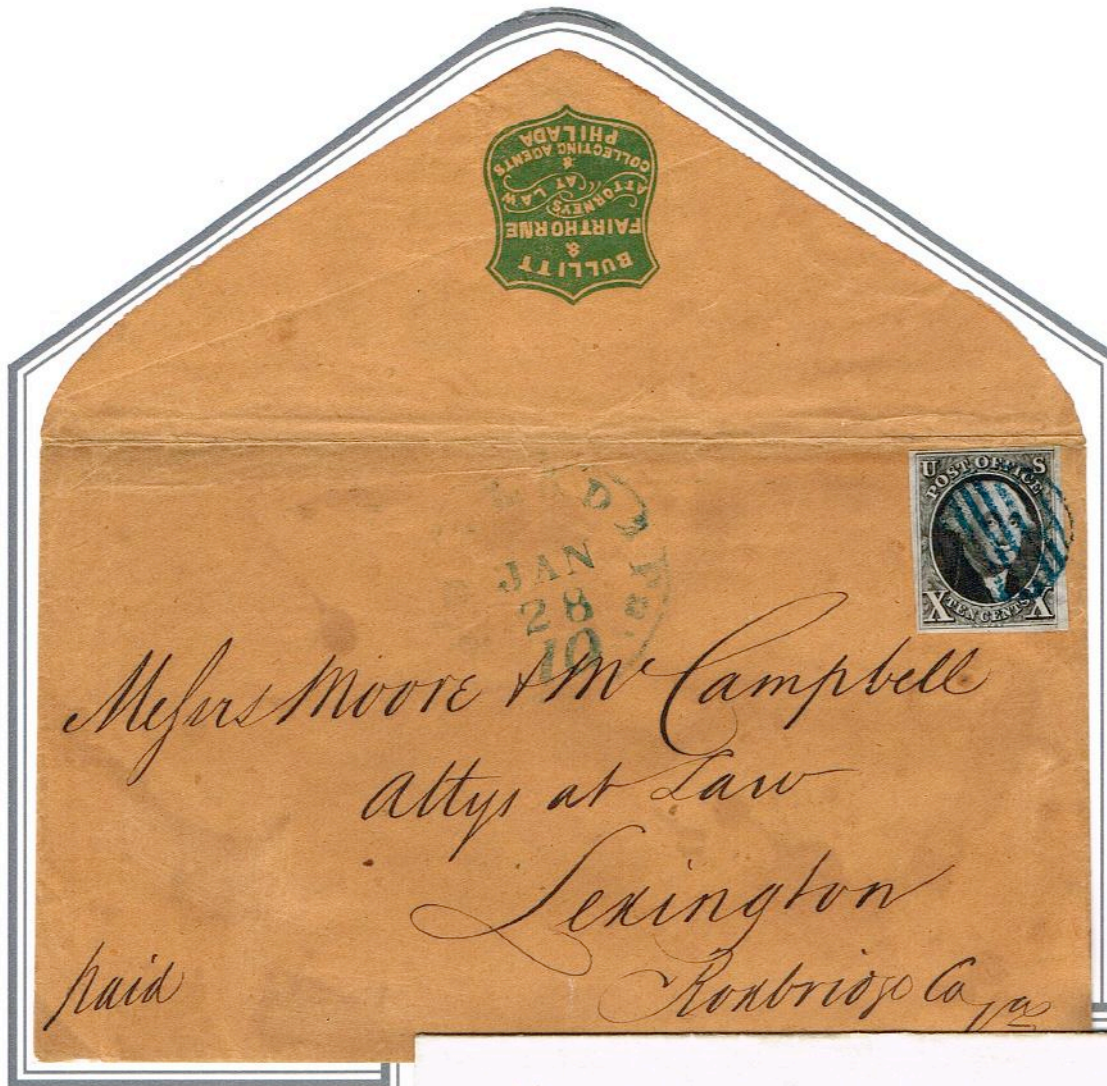 BULLITT
&
FAIRTHORNE
ATTORNEYS AT LAW
&
COLLECTING AGENTS
PHILADA
U S
POST OFFICE
X TEN CENTS X
JAN
28
10
Pa.
Messrs Moore & McCampbell
Attys at Law
Lexington
Roxbridge Co Va
Paid